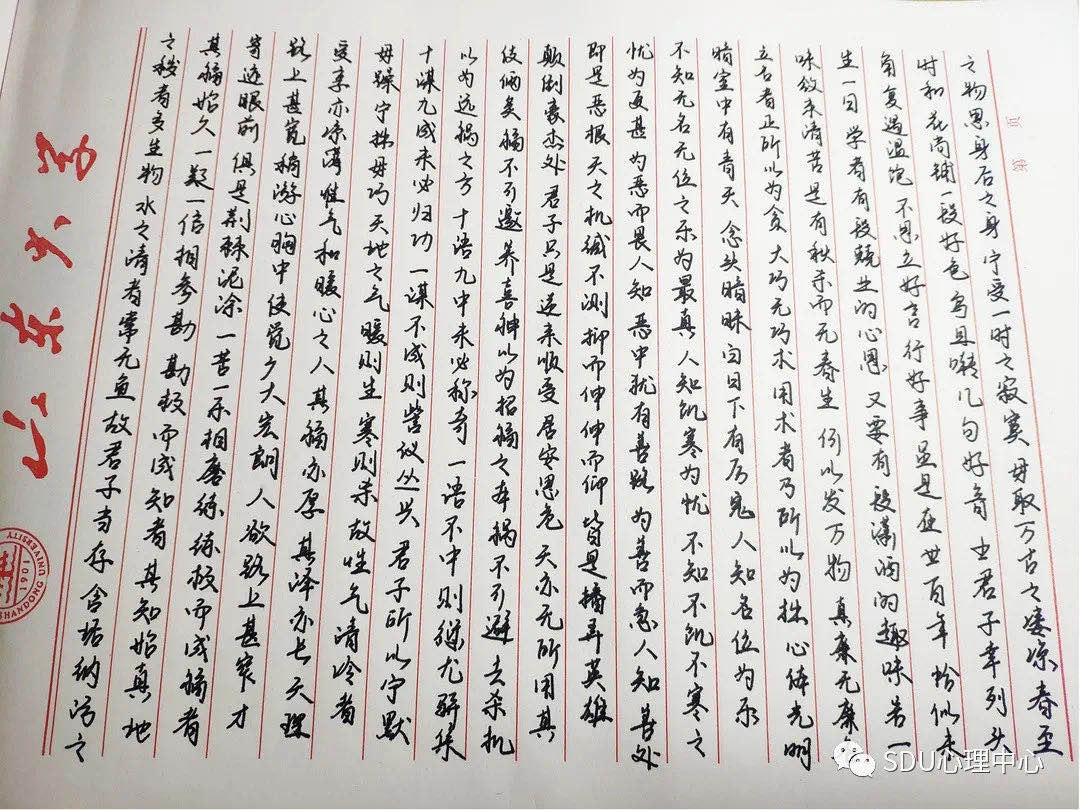 第 页
之物思身后之身宁受一时之寂寞毋取万古之凄凉春至
时和花尚铺一段好色鸟且啭几句好音士君子幸列头
角复遇温饱不思立好言行好事虽是在世百年恰似未
生一日学者有段兢业的心思又要有段潇洒的趣味若一
味敛束清苦是有秋杀而无春生何以发万物真廉无廉名
立名者正所以为贪大巧无巧术用术者乃所以为拙心体光明
暗室中有青天念头暗昧白日下有厉鬼人知名位为乐
不知无名无位之乐为最真人知饥寒为忧不知不饥不寒之
忧为更甚为恶而畏人知恶中犹有善路为善而急人知善处
即是恶根天之机缄不测抑而伸伸而仰皆是播弄英雄
颠倒豪杰处君子只是逆来顺受居安思危天亦无所用其
伎俩矣福不可邀养喜神以为招福之本祸不可避去杀机
以为远祸之方十语九中未必称奇一语不中则愆尤骈集
十谋九成未必归功一谋不成则訾议丛兴君子所以宁默
毋躁宁拙毋巧天地之气暖则生寒则杀故性气清冷者
受享亦凉薄惟气和暖心之人其福亦厚其泽亦长天理
路上甚宽稍游心胸中便觉广大宏朗人欲路上甚窄才
寄迹眼前俱是荆棘泥涂一苦一乐相磨练练极而成福者
其福始久一疑一信相参勘勘极而成知者其知始真地
之秽者多生物水之清者常无鱼故君子当存含垢纳污之
山东大学
SHANDONG UNIVERSITY
1901
SDU心理中心